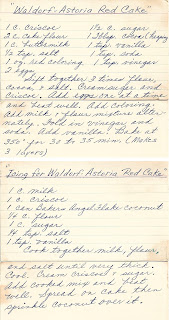 "Waldorf-Astoria Red Cake"
1 c. Criscoe 1½ c. sugar
2 c. cake flour
1 c. buttermilk 1 tsp. vanilla
½ tsp. salt 1 tsp. soda
1 oz. red coloring 1 tsp. vinegar
2 eggs
Sift together 3 times flour,
cocoa, & salt. Cream sugar and
Criscoe. Add eggs one at a time
and beat well. Add coloring.
Add milk & flour mixture alter-
nately. Fold in vinegar and
soda. Add vanilla. Bake at
350° for 30 to 35 min. (Makes
3 layers)
"Icing for Waldorf Astoria "Red Cake"
1 c. milk
1 c. Criscoe
1 can Baker Angel Flake Coconut
¼ c. flour
1 c. sugar
¼ tsp. salt
1 tsp. vanilla
Cook together milk, flour,
and salt until very thick.
Cool. Cream Criscoe & sugar.
Add cooked mix and beat
well. Spread on cake then
sprinkle coconut over it.